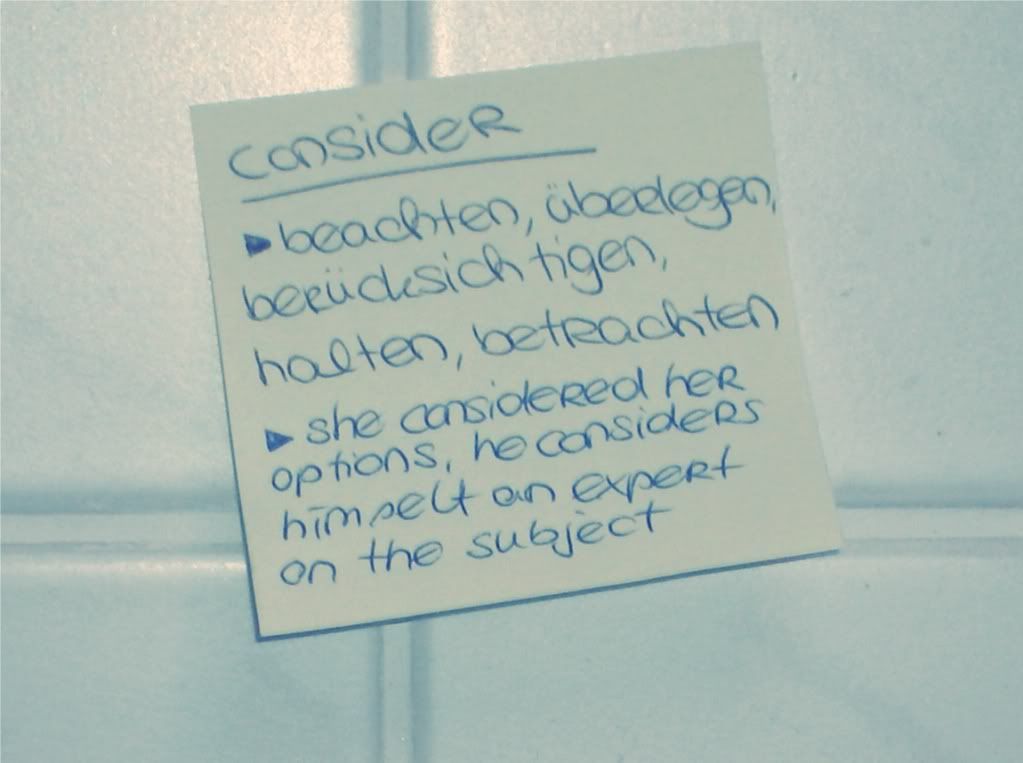 consider
▶ beachten, überlegen,
berücksichtigen,
halten, betrachten
▶ she considered her
options, he considers
himself an expert
on the subject